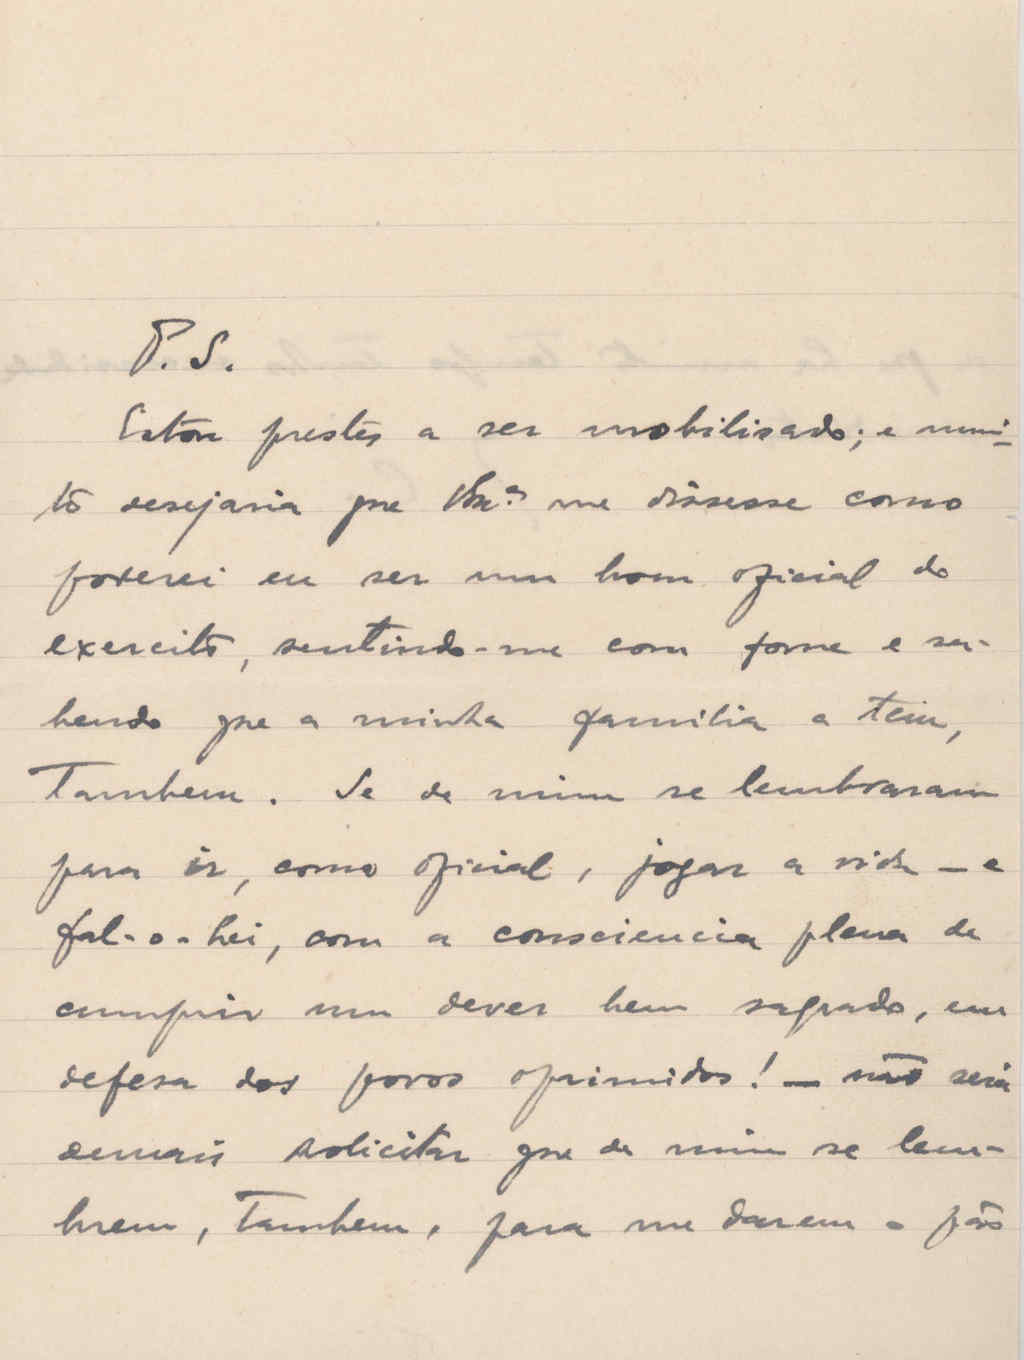 P.S.
Estou prestes a ser mobilisado; e mui-
to desejaria que V.Ex.ª me dissesse como
poderei eu ser um bom oficial do
exercito, sentindo-me com fome e sa-
bendo que a minha familia a tem,
tambem. Se de mim se lembraram
para ir, como oficial, jogar a vida — e
fal-o-hei, com a consciencia plena de
cumprir um dever bem sagrado, em
defesa dos povos oprimidos! — não será
demais solicitar que de mim se lem-
brem, tambem, para me darem o pão